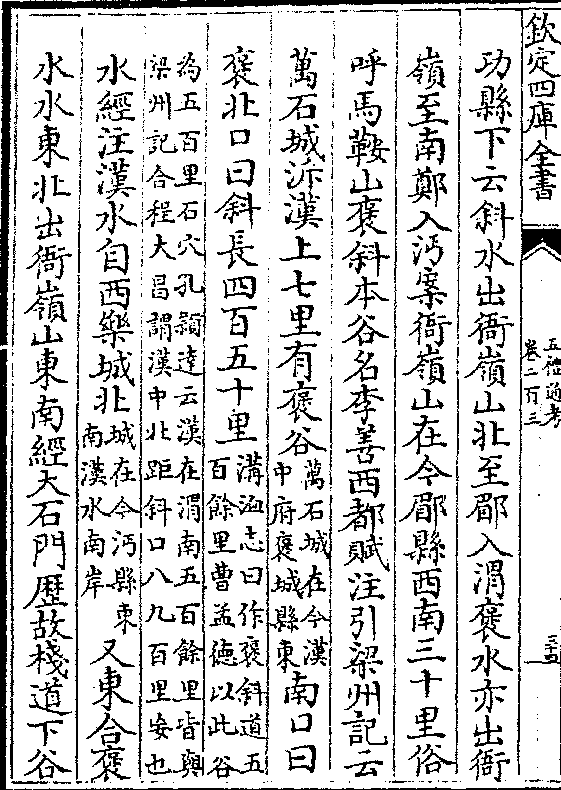 欽定四庫全書
五禮通考
卷二百三
三十四
功縣下云斜水出衙嶺山北至郿入渭褒水亦出衙
嶺至南鄭入沔案衙嶺山在今郿縣西南三十里俗
呼馬鞍山褒斜本谷名李善西都賦注引梁州記云
萬石城泝漢上七里有褒谷
萬石城在今漢
中府褒城縣東
南口曰
褒北口曰斜長四百五十里
溝洫志曰作褒斜道五
百餘里曹孟德以此谷
為五百里石穴孔穎達云漢在渭南五百餘里皆與
梁州記合程大昌謂漢中北距斜口八九百里妄也
水經注漢水自西樂城北
城在今沔縣東
南漢水南岸
又東合褒
水水東北出衙嶺山東南經大石門歴故棧道下谷